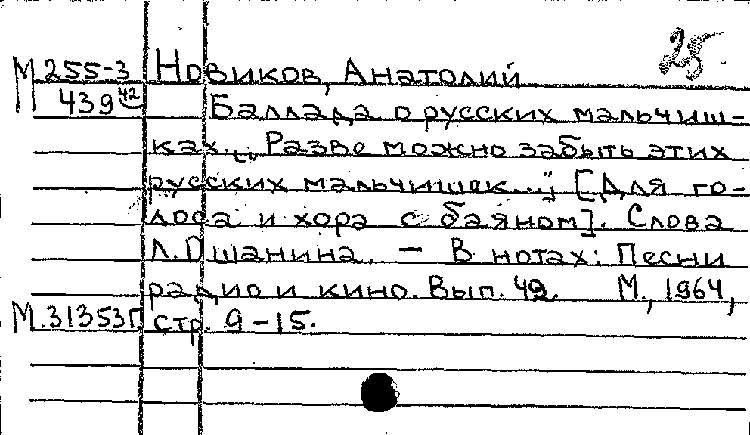 25
М 255-3 Новиков, Анатолий
439 42 Баллада о русских мальчиш-
ках. „Разве можно забыть этих
русских мальчишек...", [Для го-
лоса и хора с баяном]. Слова
Л. Ошанина. — В нотах: Песни
радио и кино. Вып. 49. М., 1964,
М.31353П стр. 9-15.